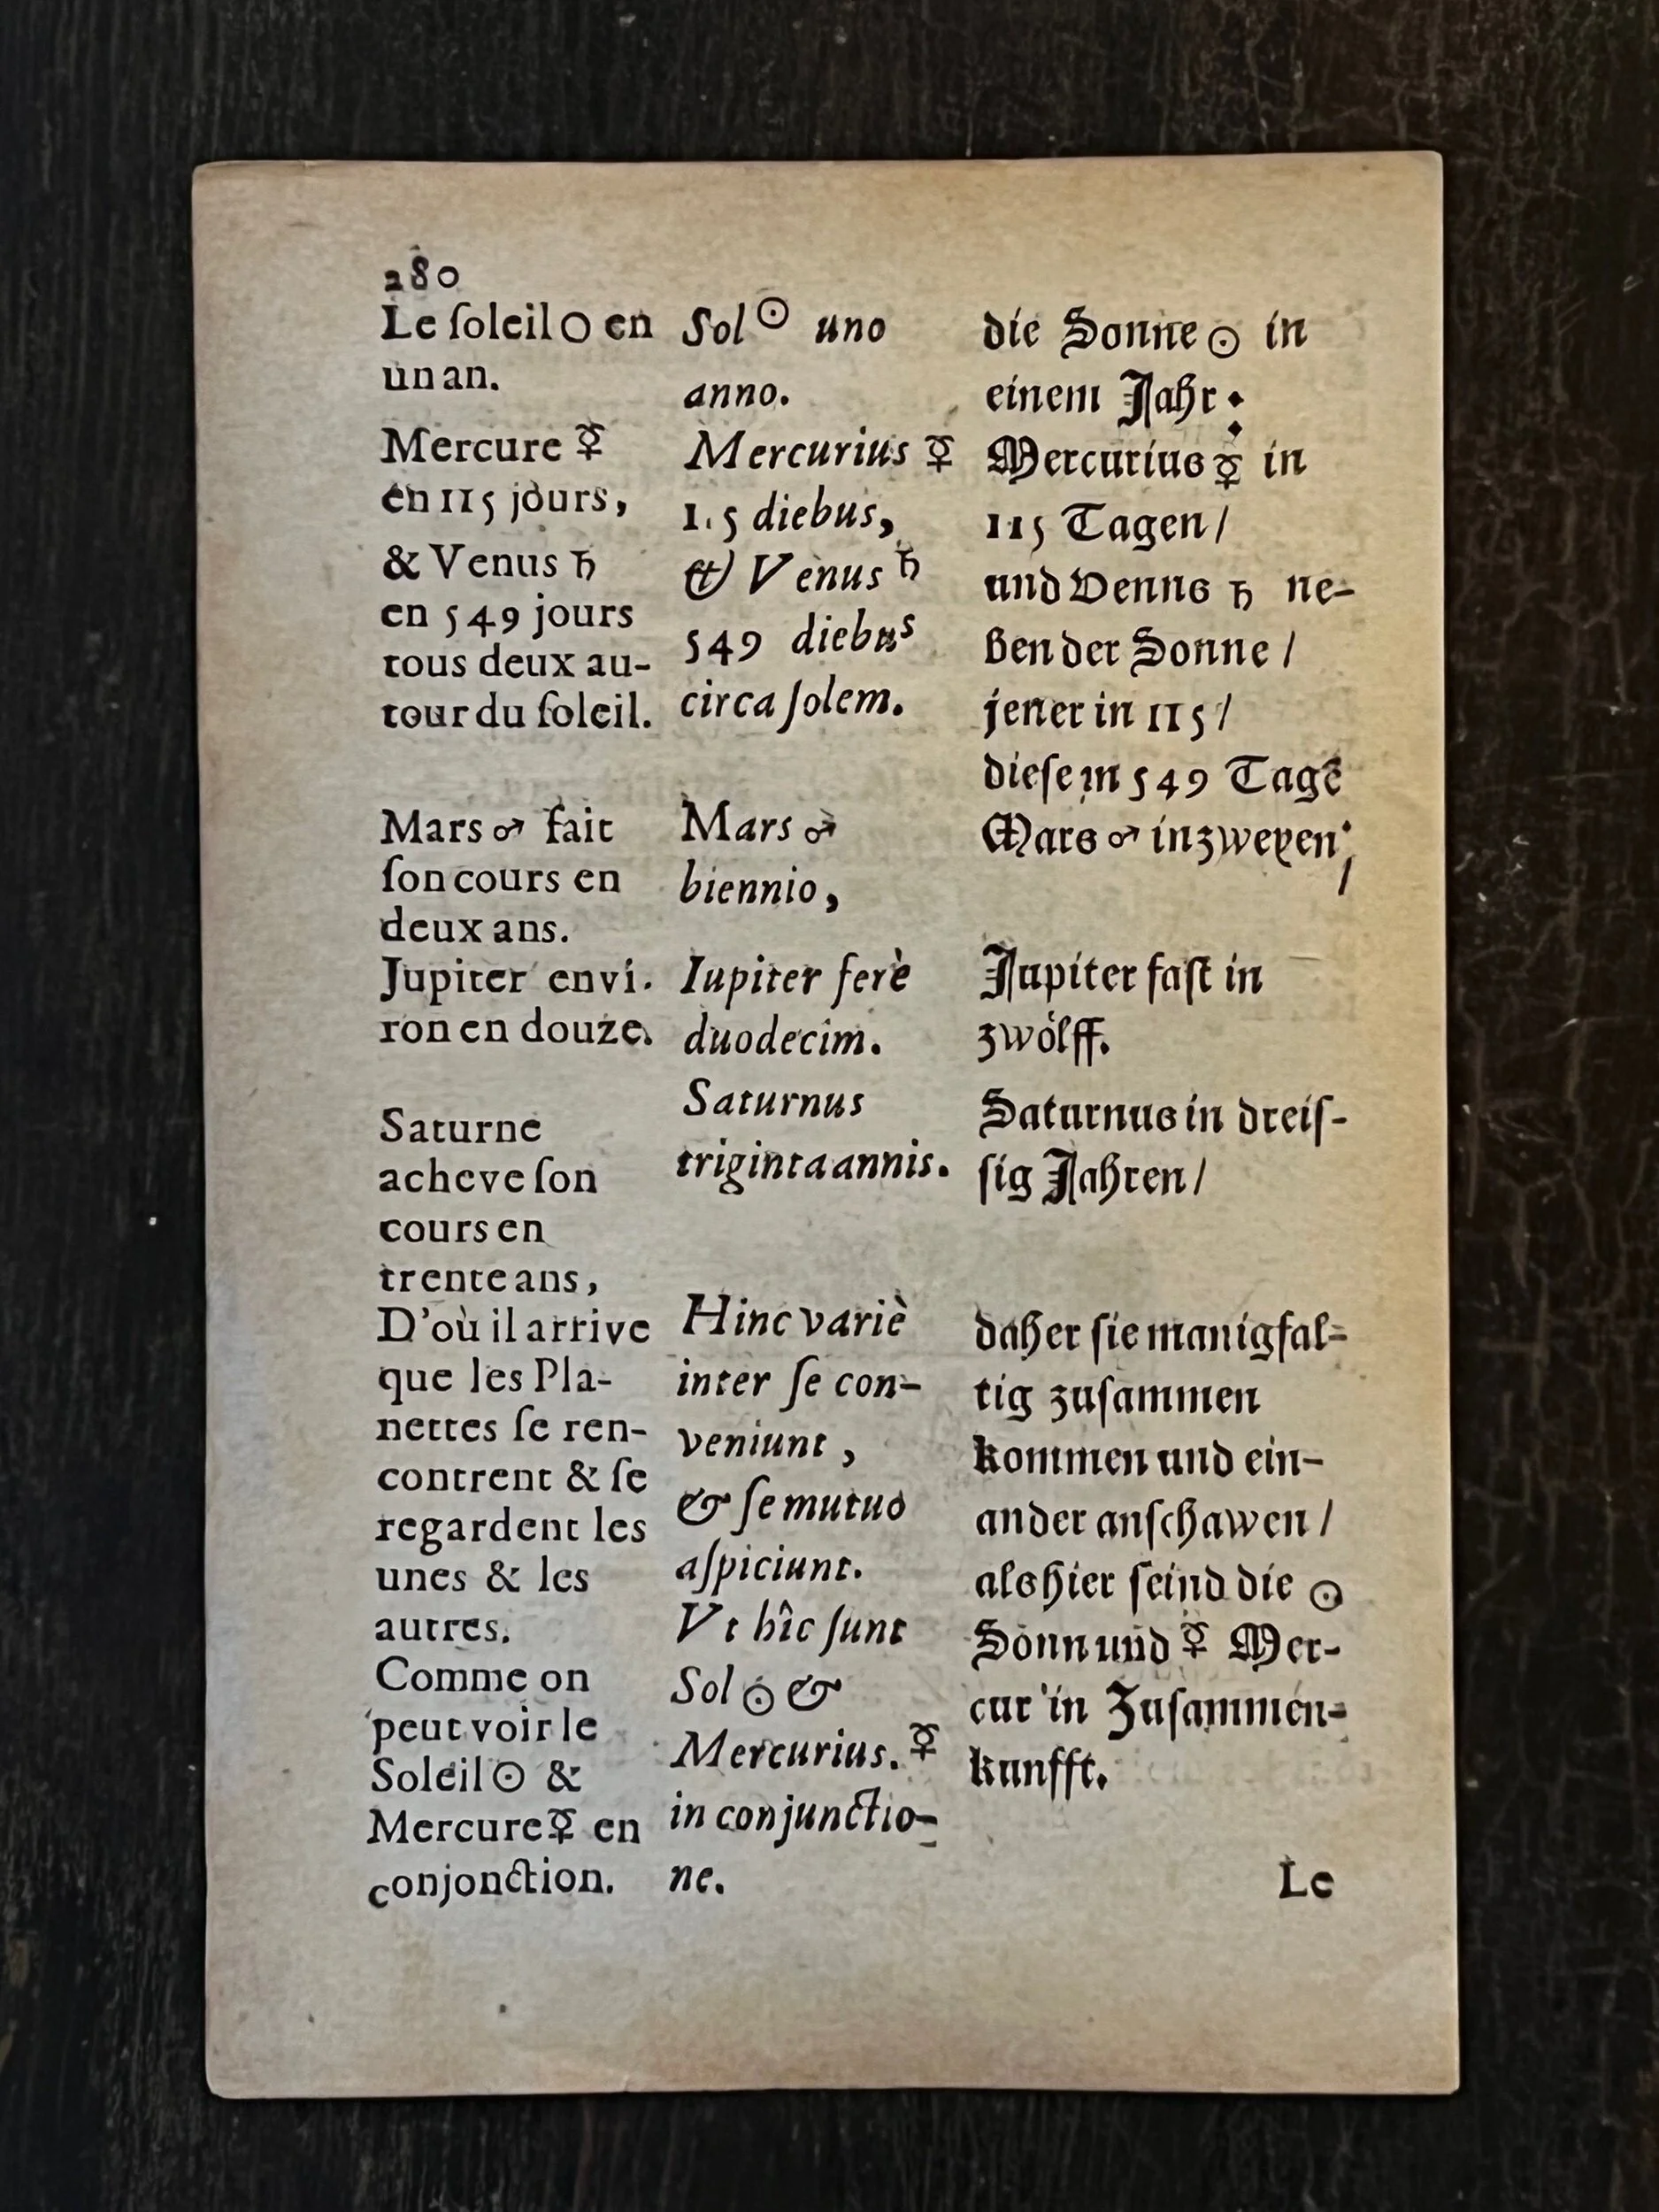 280
Le ſoleil☉ en
un an.
Mercure ☿
en 115 jours,
& Venus ♄
en 549 jours
tous deux au-
tour du ſoleil.
Mars ♂ fait
ſon cours en
deux ans.
Jupiter envi.
ron en douze.
Saturne
acheve ſon
cours en
trente ans,
D'où il arrive
que les Pla-
nettes ſe ren-
contrent & ſe
regardent les
unes & les
autres.
Comme on
peut voir le
Soleil☉ &
Mercure☿ en
conjonction.
Sol ☉ uno
anno.
Mercurius ☿
1.5 diebus,
& Venus ♄
549 diebus
circa ſolem.
Mars ♂
biennio,
Iupiter ferè
duodecim.
Saturnus
triginta annis.
Hinc variè
inter ſe con-
veniunt,
& ſe mutuò
aſpiciunt.
Vt hîc ſunt
Sol ☉ &
Mercurius. ☿
in conjunctio-
ne.
die Sonne ☉ in
einem Jahr:
Mercurius ☿ in
115 Tagen/
und Venns ♄ ne-
ben der Sonne /
jener in 115/
dieſe in 549 Tagē
Mars ♂ in zweyen/
Jupiter faſt in
zwölff.
Saturnus in dreiſ-
ſig Jahren/
daher ſie manigfal-
tig zuſammen
kommen und ein-
ander anſchawen /
als hier ſeind die ☉
Sonn und ☿ Mer-
cur in Zuſammen-
kunfft.
Le